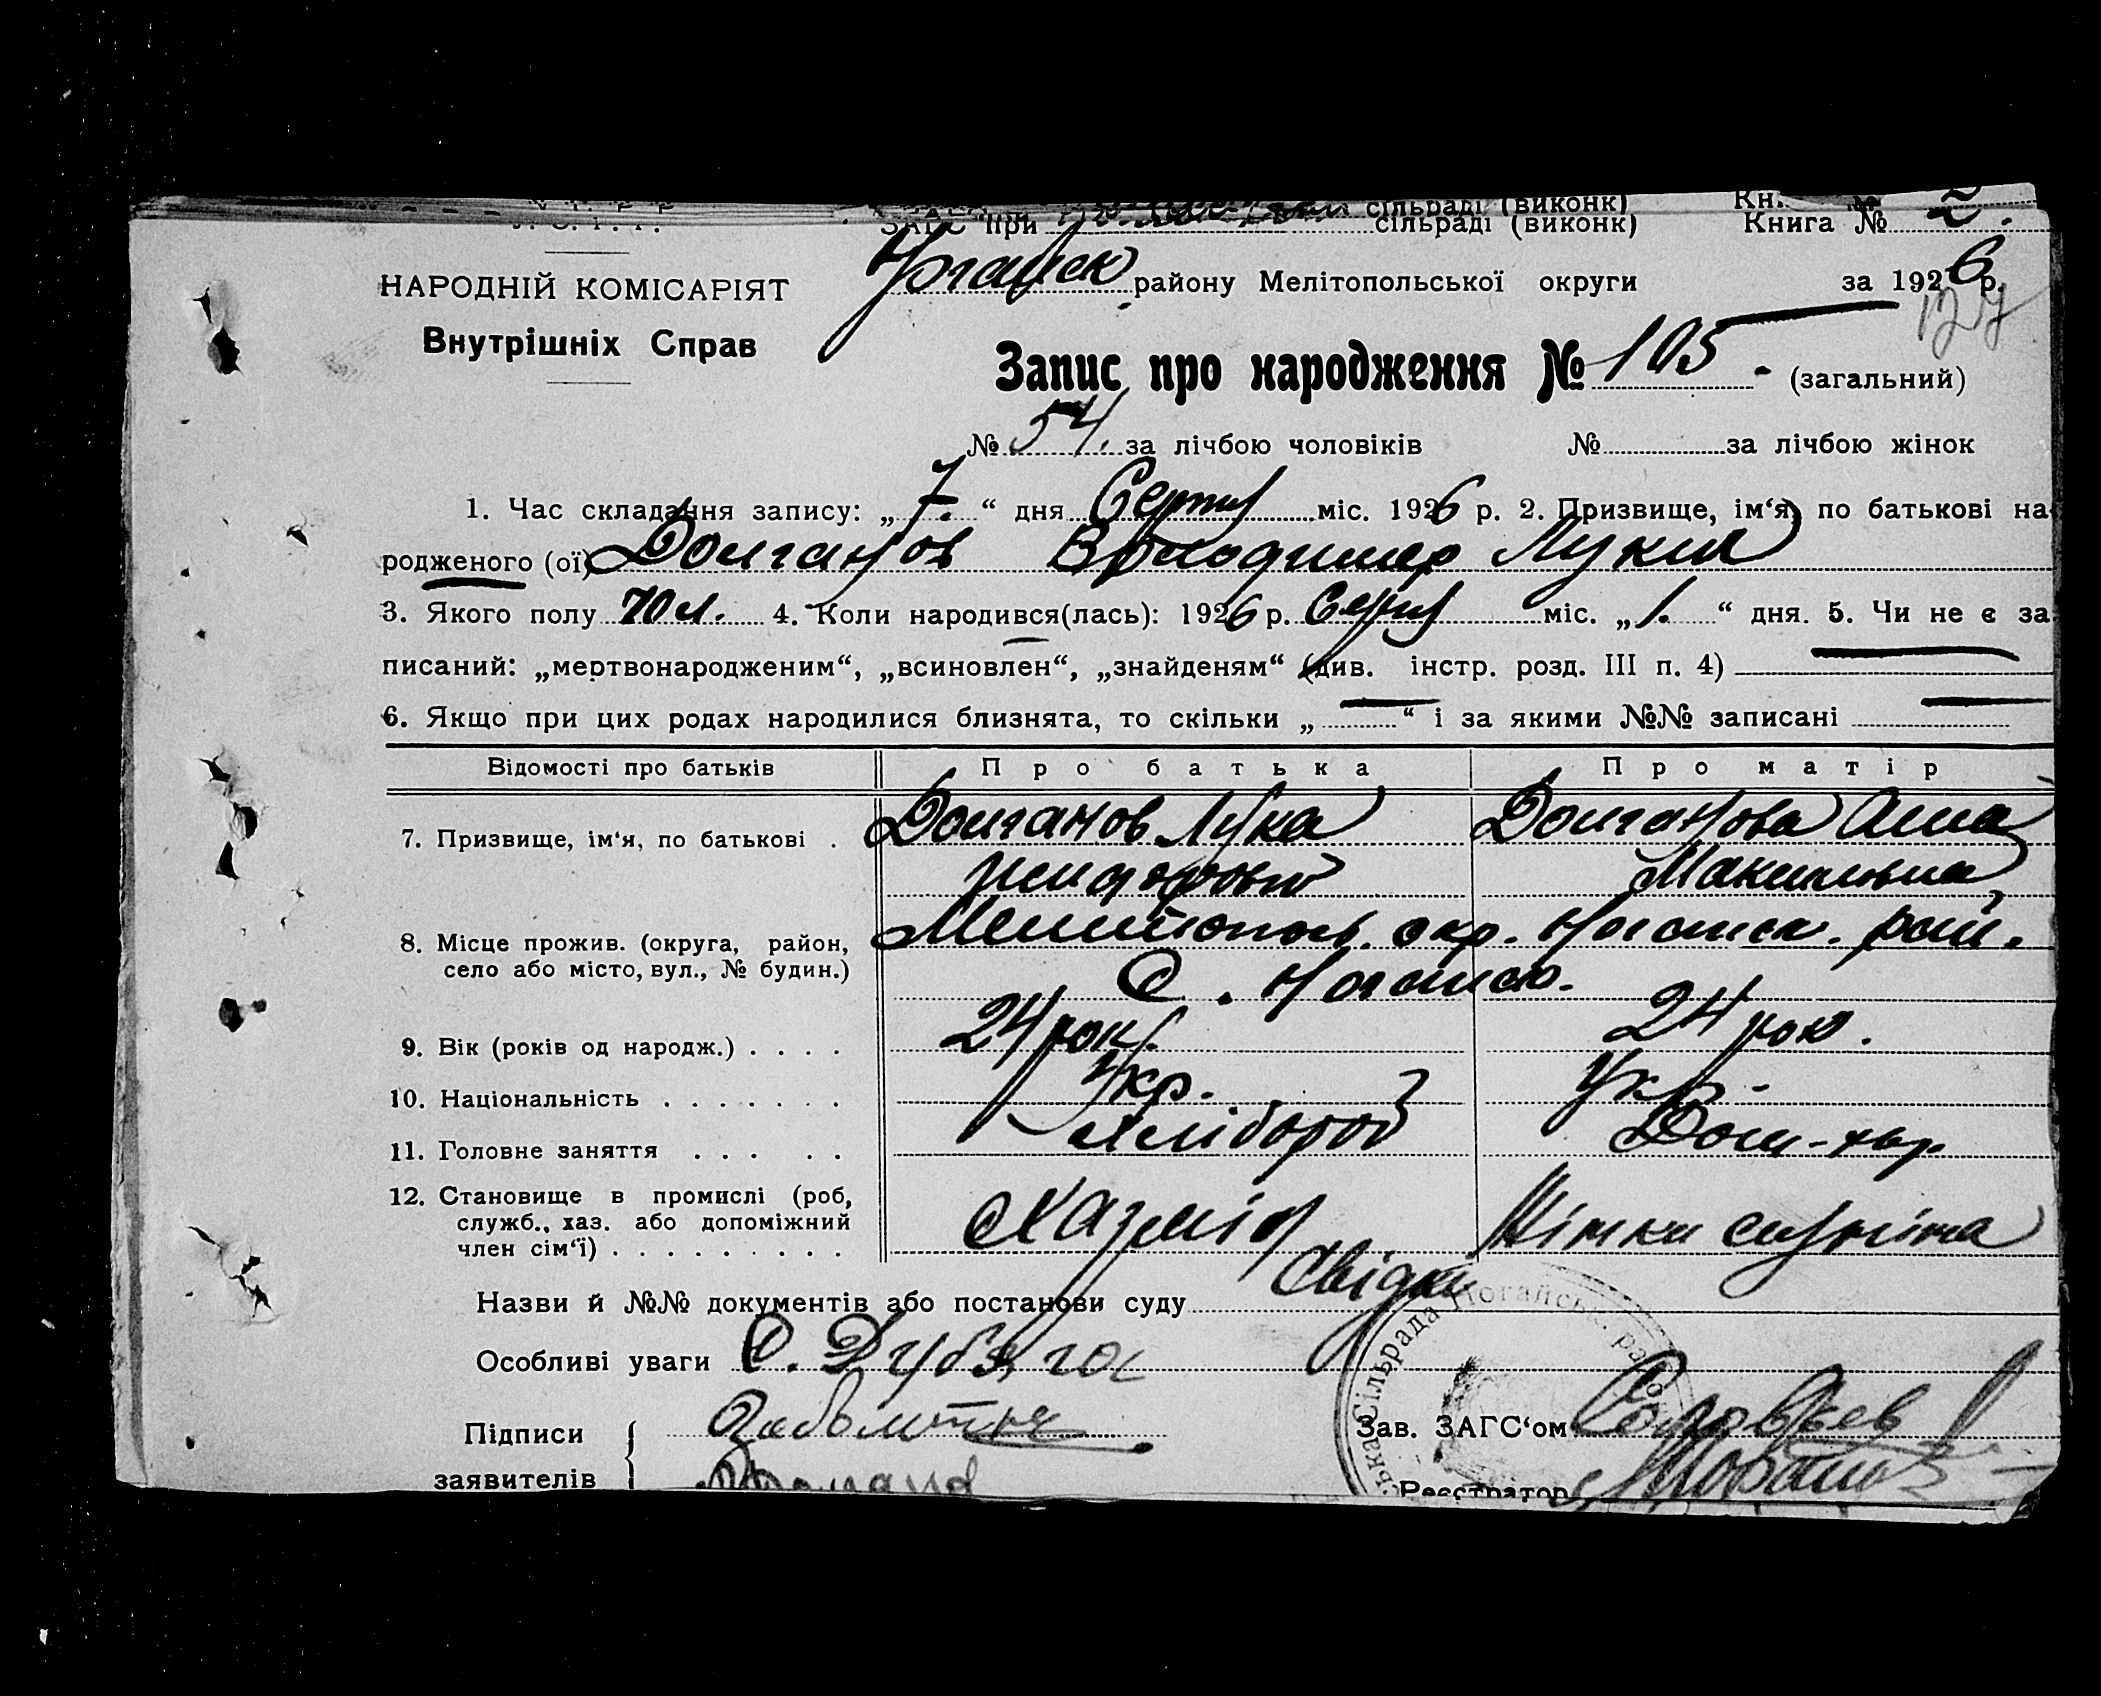 сільраді (виконк)
ЗАГС при сільраді (виконк) Книга № 2.
НАРОДНІЙ КОМІСАРІЯТ
Ногайськ району Мелітопольської округи за 1926 р.
127
Внутрішніх Справ
Запис про народження № 105. (загальний)
№ 54. за лічбою чоловіків № за лічбою жінок
1. Час складання запису: „7.“ дня Серпня міс. 1926 р. 2. Призвище, ім‘я, по батькові на-
родженого (ої) Долганов Володимер Лукич
3. Якого полу чол. 4. Коли народився(лась): 1926 р. Серпня міс. „1.“ дня. 5. Чи не є за-
писаний: „мертвонародженим“, „всиновлен“, „знайденям“ (див. інстр. розд. III п. 4) —
6. Якщо при цих родах народилися близнята, то скільки „—“ і за якими №№ записані —
Відомості про батьків Про батька Про матір
7. Призвище, ім‘я, по батькові . Долганов Лука Долганова Анна
Максимовна
8. Місце прожив. (округа, район, Мелітопол. окр. Ногайськ. рай.
село або місто, вул., № будин.) С. Ногайськ.
9. Вік (років од народж.) . . . . 24 рок. 24 рок.
10. Національність . . . . . . . Укр. Укр.
11. Головне заняття . . . . . Хлібороб Дом-хаз.
12. Становище в промислі (роб,
служб., хаз. або допоміжний Хазяїн
член сім‘ї) . . . . . . . . .
Назви й №№ документів або постанови суду Свідки
Особливі уваги С. Дубяга
Підписи Заболотня Зав. ЗАГС‘ом Соловьев
заявителів Реєстратор
Сільрада Ногайськ. району